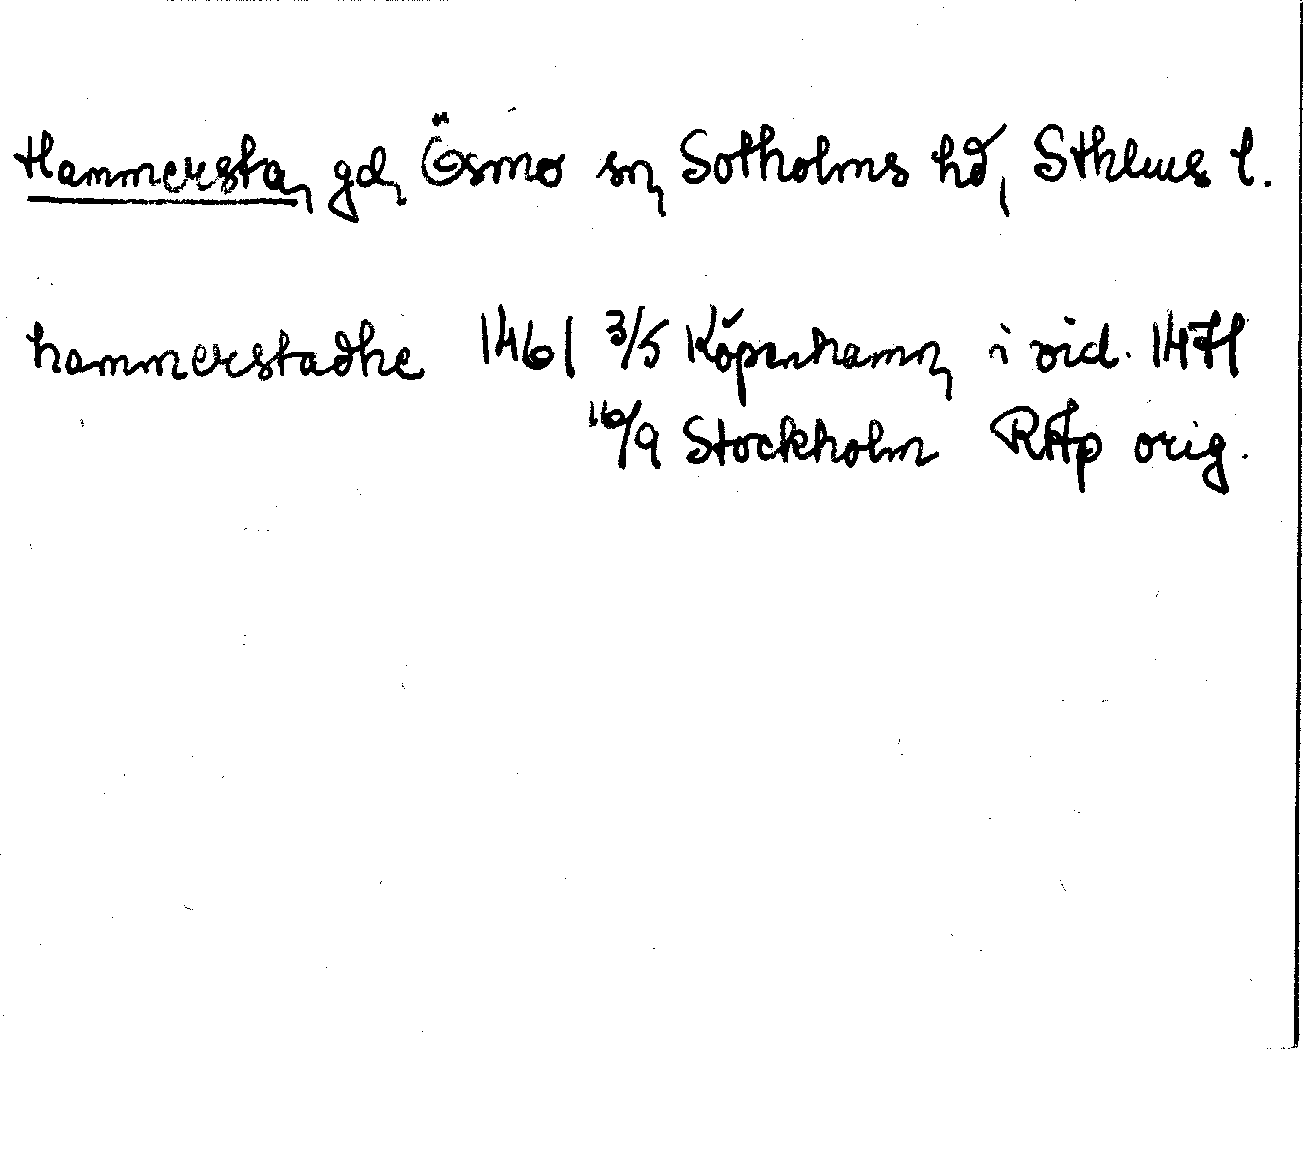 Hammersta, gd, Ösmo sn, Sotholms hd, Sthlms l.
hammerstadhe 1461 3/5 Köpenhamn, i vid. 1471
16/9 Stockholm RAp orig.